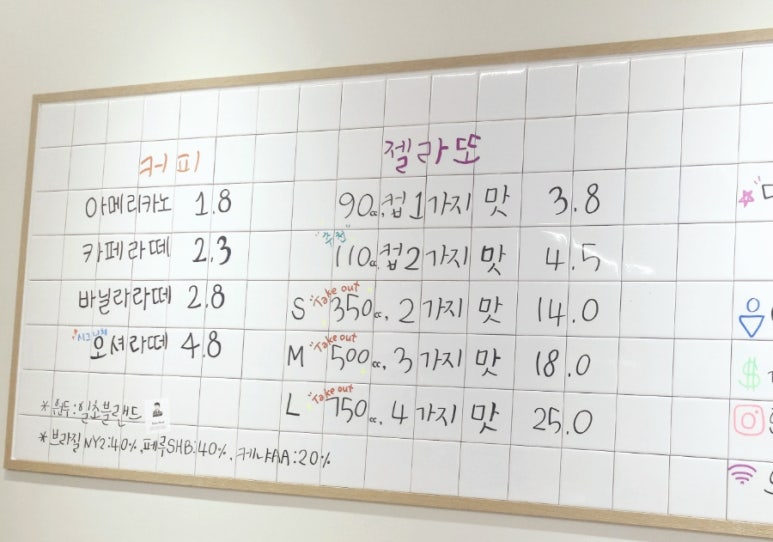 커피
아메리카노 1.8
카페라떼 2.3
바닐라라떼 2.8
"시그니처"
오셔라떼 4.8
* 원두:일초블랜드
* 브라질NY2:40%, 페루SHB:40%, 케냐AA:20%
젤라또
90cc.컵1가지 맛 3.8
"추천"
110cc.컵2가지 맛 4.5
"Take out"
S 350cc. 2가지 맛 14.0
"Take out"
M 500cc. 3가지 맛 18.0
"Take out"
L 750cc. 4가지 맛 25.0
$